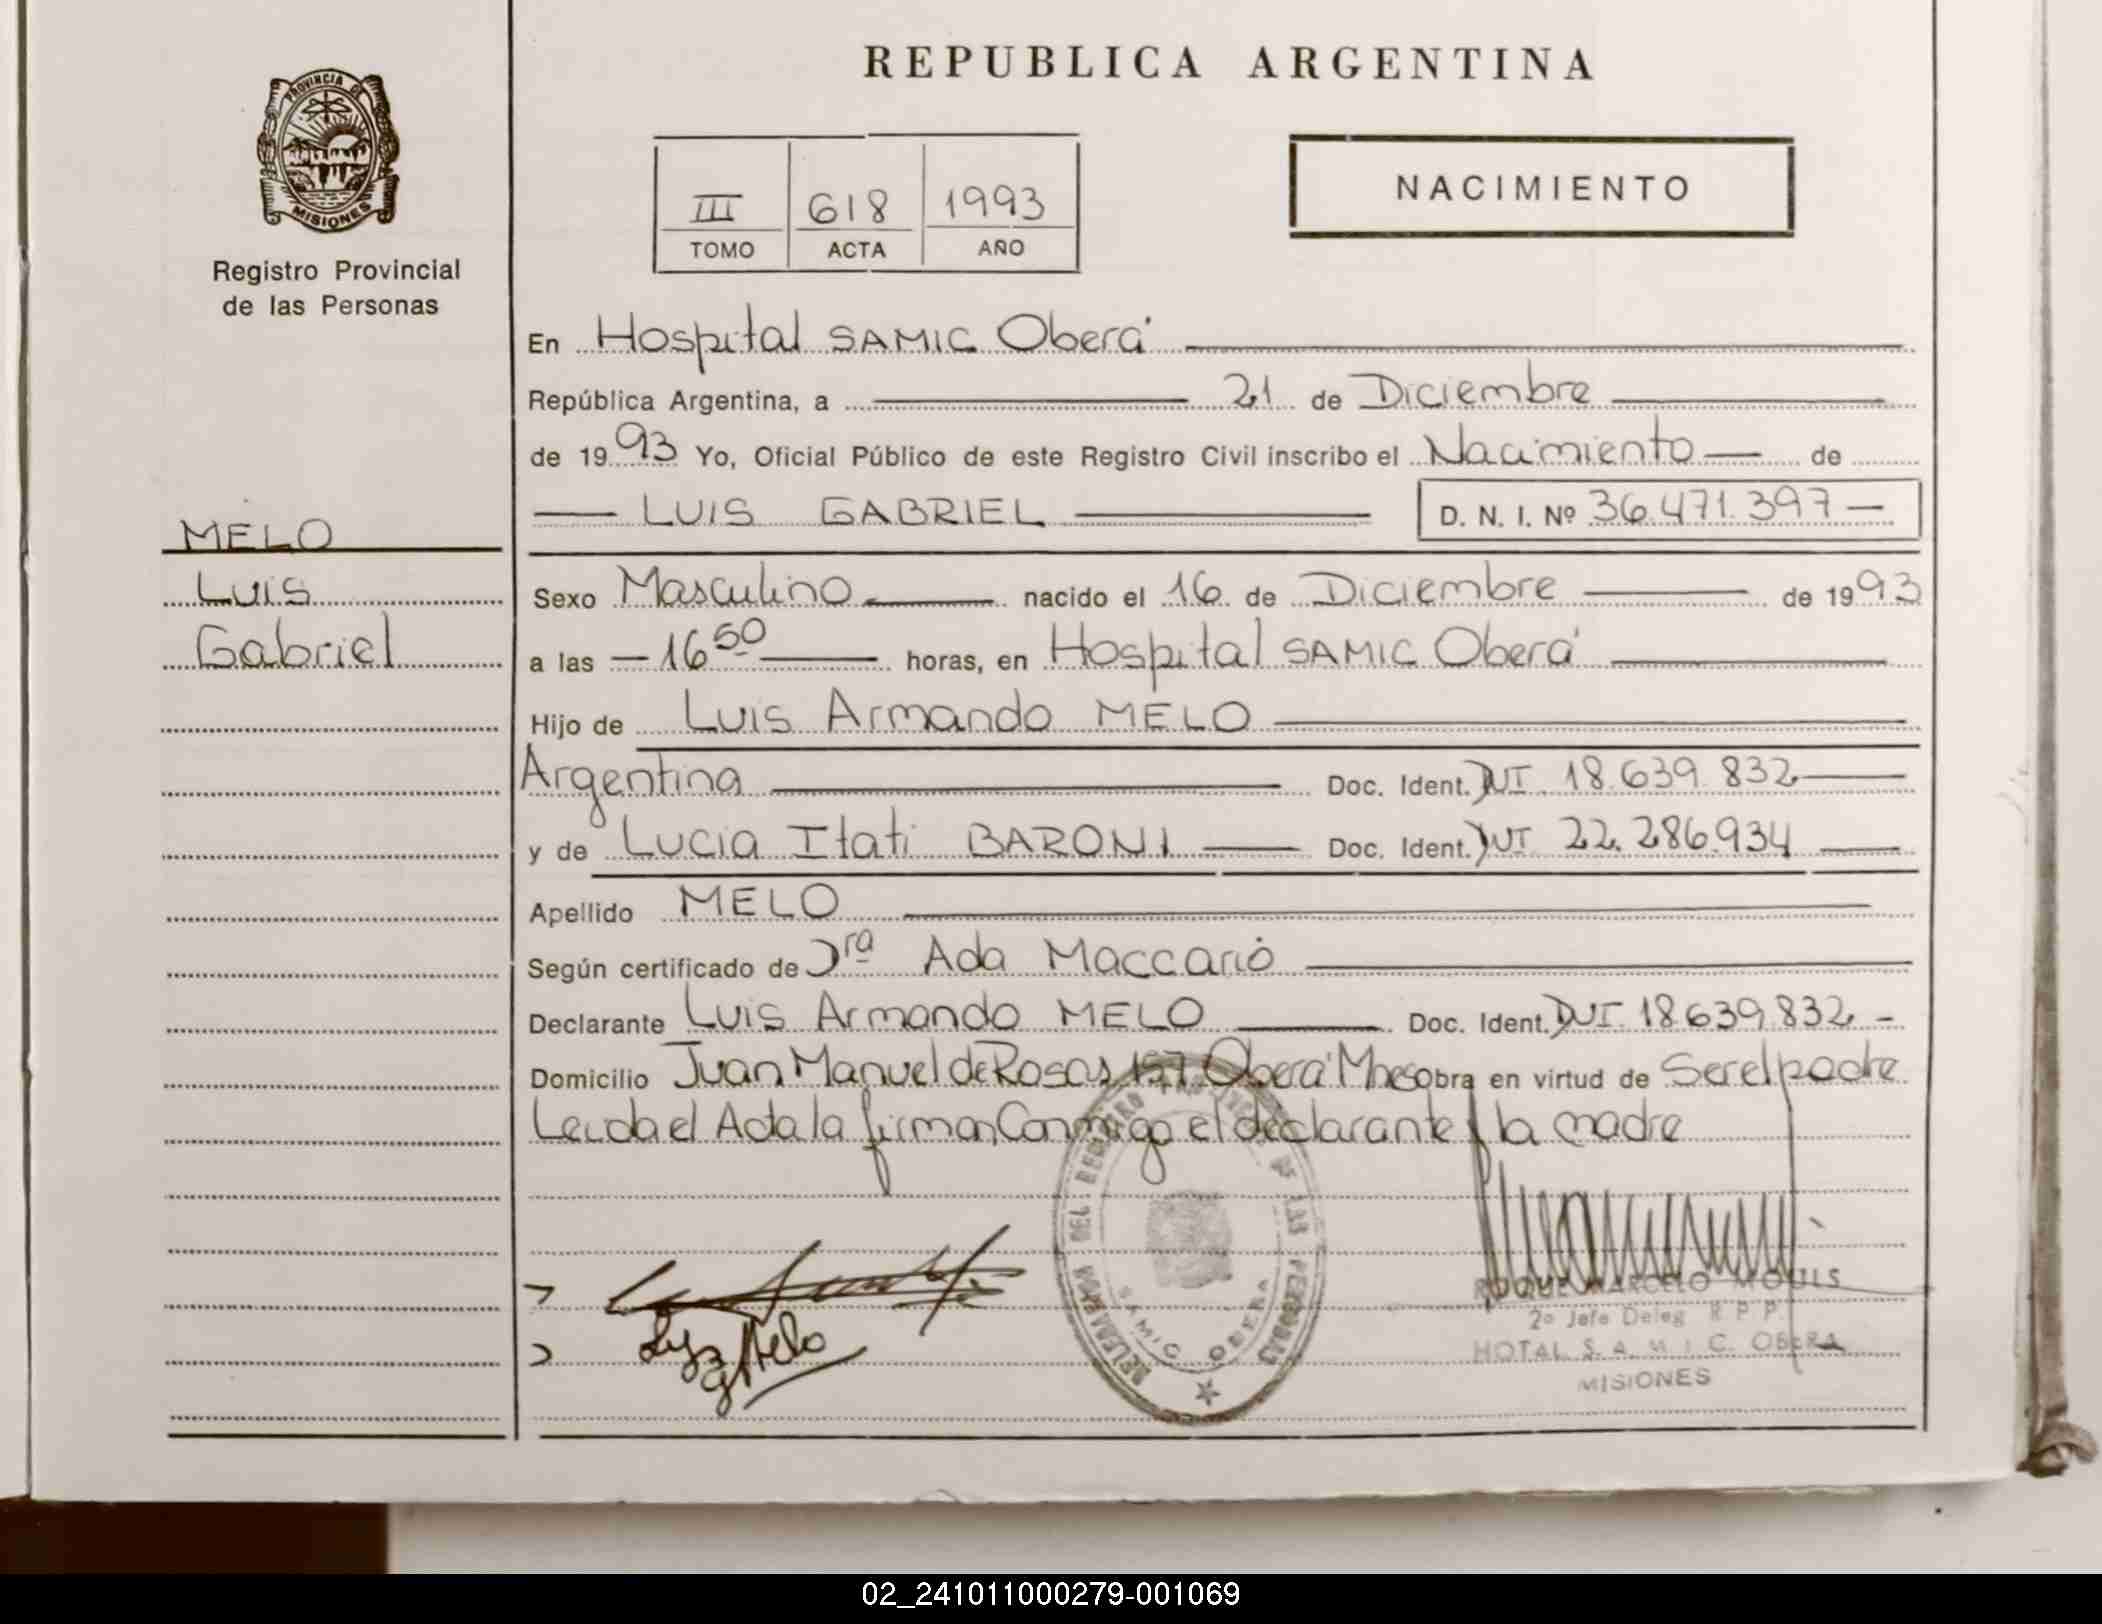 REPUBLICA ARGENTINA
PROVINCIA DE
MISIONES
Registro Provincial
de las Personas
III 618 1993
TOMO ACTA AÑO
NACIMIENTO
MELO
Luis
Gabriel
En Hospital SAMIC Oberá
República Argentina, a 21 de Diciembre
de 1993 Yo, Oficial Público de este Registro Civil inscribo el Nacimiento de
LUIS GABRIEL D. N. I. Nº 36.471.397
Sexo Masculino nacido el 16 de Diciembre de 1993
a las 16 50 horas, en Hospital SAMIC Oberá
Hijo de Luis Armando MELO
Argentina Doc. Ident. DUI 18.639.832
y de Lucia Itati BARONI Doc. Ident. DUI 22.286.934
Apellido MELO
Según certificado de Dra Ada Maccarió
Declarante Luis Armando MELO Doc. Ident. DUI 18639.832
Domicilio Juan Manuel de Rosas 157 Oberá Mnes obra en virtud de Ser el padre
Leida el Acta la firman Conmigo el declarante y la madre
DEL REGISTRO PROVINCIAL DE LAS PERSONAS
SAMIC OBERA
ROQUE MARCELO
2º Jefe Deleg R P P
HOTAL S. A. M. I. C. OBERA
MISIONES
02_241011000279-001069